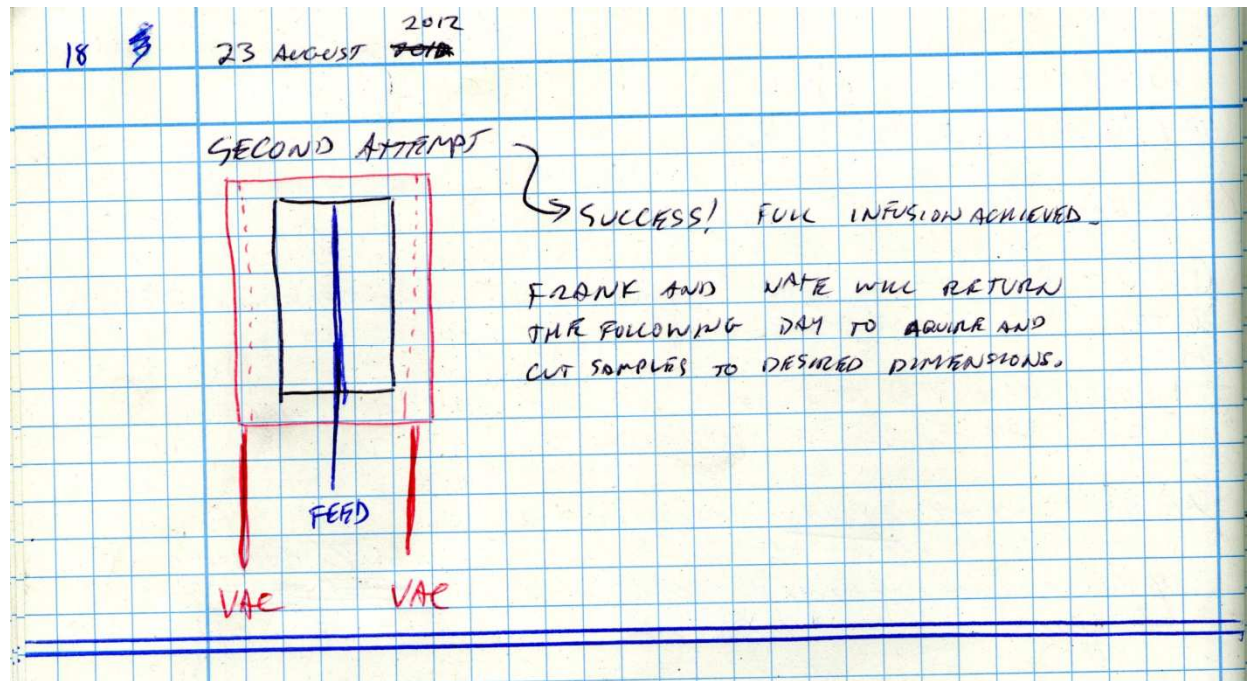 2012
18 23 AUGUST
SECOND ATTEMPT
SUCCESS! FULL INFUSION ACHIEVED.
FRANK AND NATE WILL RETURN
THE FOLLOWING DAY TO AQUIRE AND
CUT SAMPLES TO DESIRED DIMENSIONS.
FEED
VAC VAC